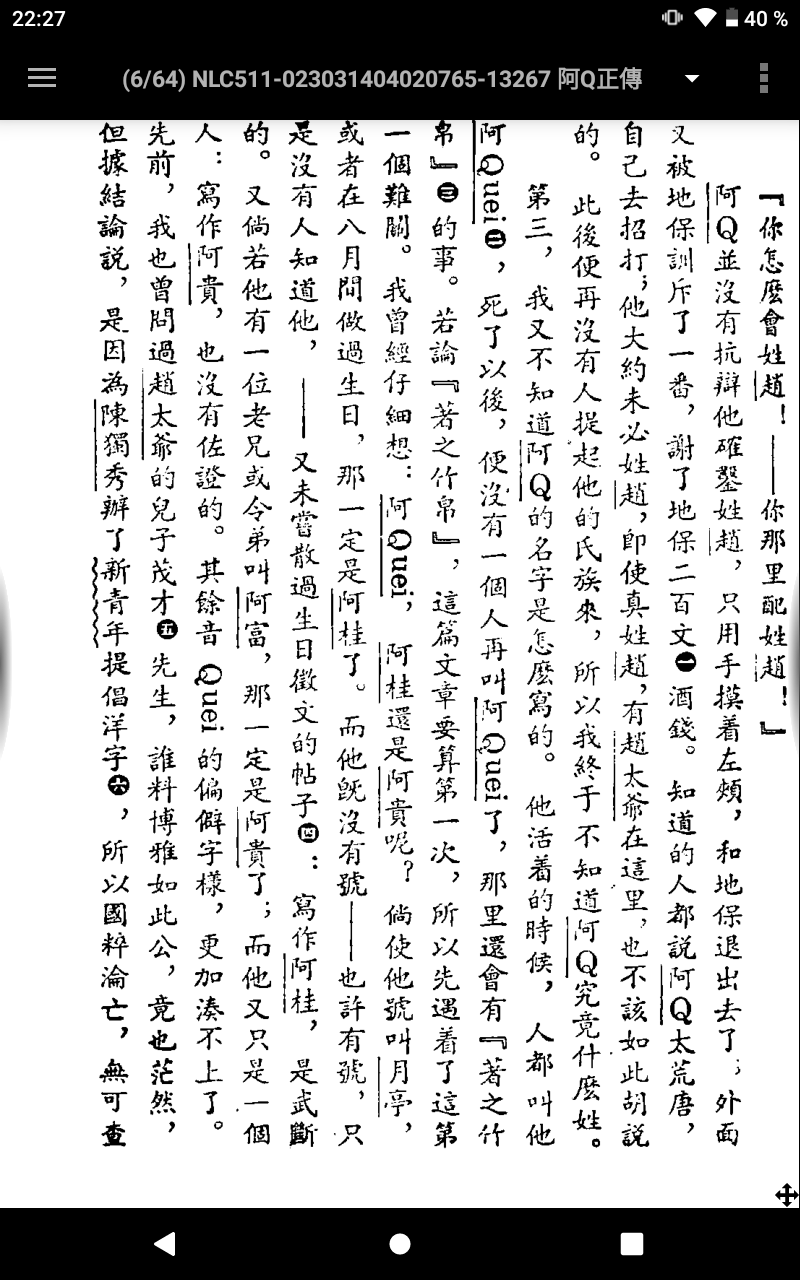 22:27
40 %
(6/64) NLC511-023031404020765-13267 阿Q正傳
『你怎麽會姓趙！——你那里配姓趙！』
阿Q並沒有抗辯他確鑿姓趙，只用手摸着左頰，和地保退出去了；外面
又被地保訓斥了一番，謝了地保二百文㊀酒錢。知道的人都說阿Q太荒唐，
自己去招打；他大約未必姓趙，卽使真姓趙，有趙太爺在這里，也不該如此胡說
的。此後便再沒有人提起他的氏族來，所以我終于不知道阿Q究竟什麽姓。
第三，我又不知道阿Q的名字是怎麽寫的。他活着的時候，人都叫他
阿Quei㊁，死了以後，便沒有一個人再叫阿Quei了，那里還會有『著之竹
帛』㊂的事。若論『著之竹帛』，這篇文章要算第一次，所以先遇着了這第
一個難關。我曾經仔細想：阿Quei，阿桂還是阿貴呢？倘使他號叫月亭，
或者在八月間做過生日，那一定是阿桂了。而他旣沒有號——也許有號，只
是沒有人知道他，——又未嘗散過生日徵文的帖子㊃：寫作阿桂，是武斷
的。又倘若他有一位老兄或令弟叫阿富，那一定是阿貴了；而他又只是一個
人：寫作阿貴，也沒有佐證的。其餘音Quei的偏僻字樣，更加湊不上了。
先前，我也曾問過趙太爺的兒子茂才㊄先生，誰料博雅如此公，竟也茫然，
但據結論說，是因為陳獨秀辦了新青年提倡洋字㊅，所以國粹淪亡，無可查